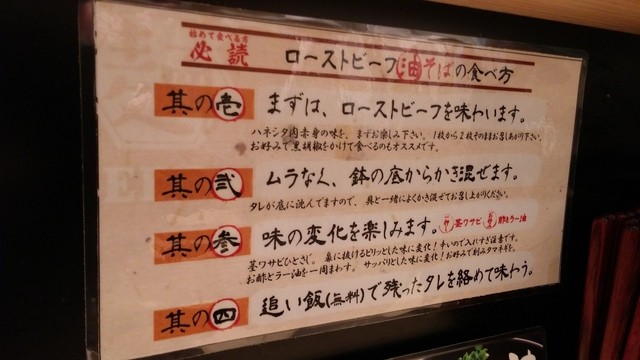 始めて食べる方
必読
ローストビーフ油そばの食べ方
其の壱
まずは、ローストビーフを味わいます。
ハネシタ肉赤身の味を、まずお楽しみ下さい。1枚から2枚そのままお召しあがり下さい。
お好みで黒胡椒をかけて食べるのもオススメです。
其の弐
ムラなく、鉢の底からかき混ぜます。
タレが底に沈んでますので、具と一緒によくかき混ぜてお召し上がりください。
其の参
味の変化を楽しみます。
茎ワサビ
酢とラー油
茎ワサビひとさじ。鼻に抜けるピリッとした味に変化!辛いので入れすぎ注意です。
お酢とラー油を一周まわす。サッパリとした味に変化!お好みで刻みタマネギを。
其の四
追い飯(無料)で残ったタレを絡めて味わう。